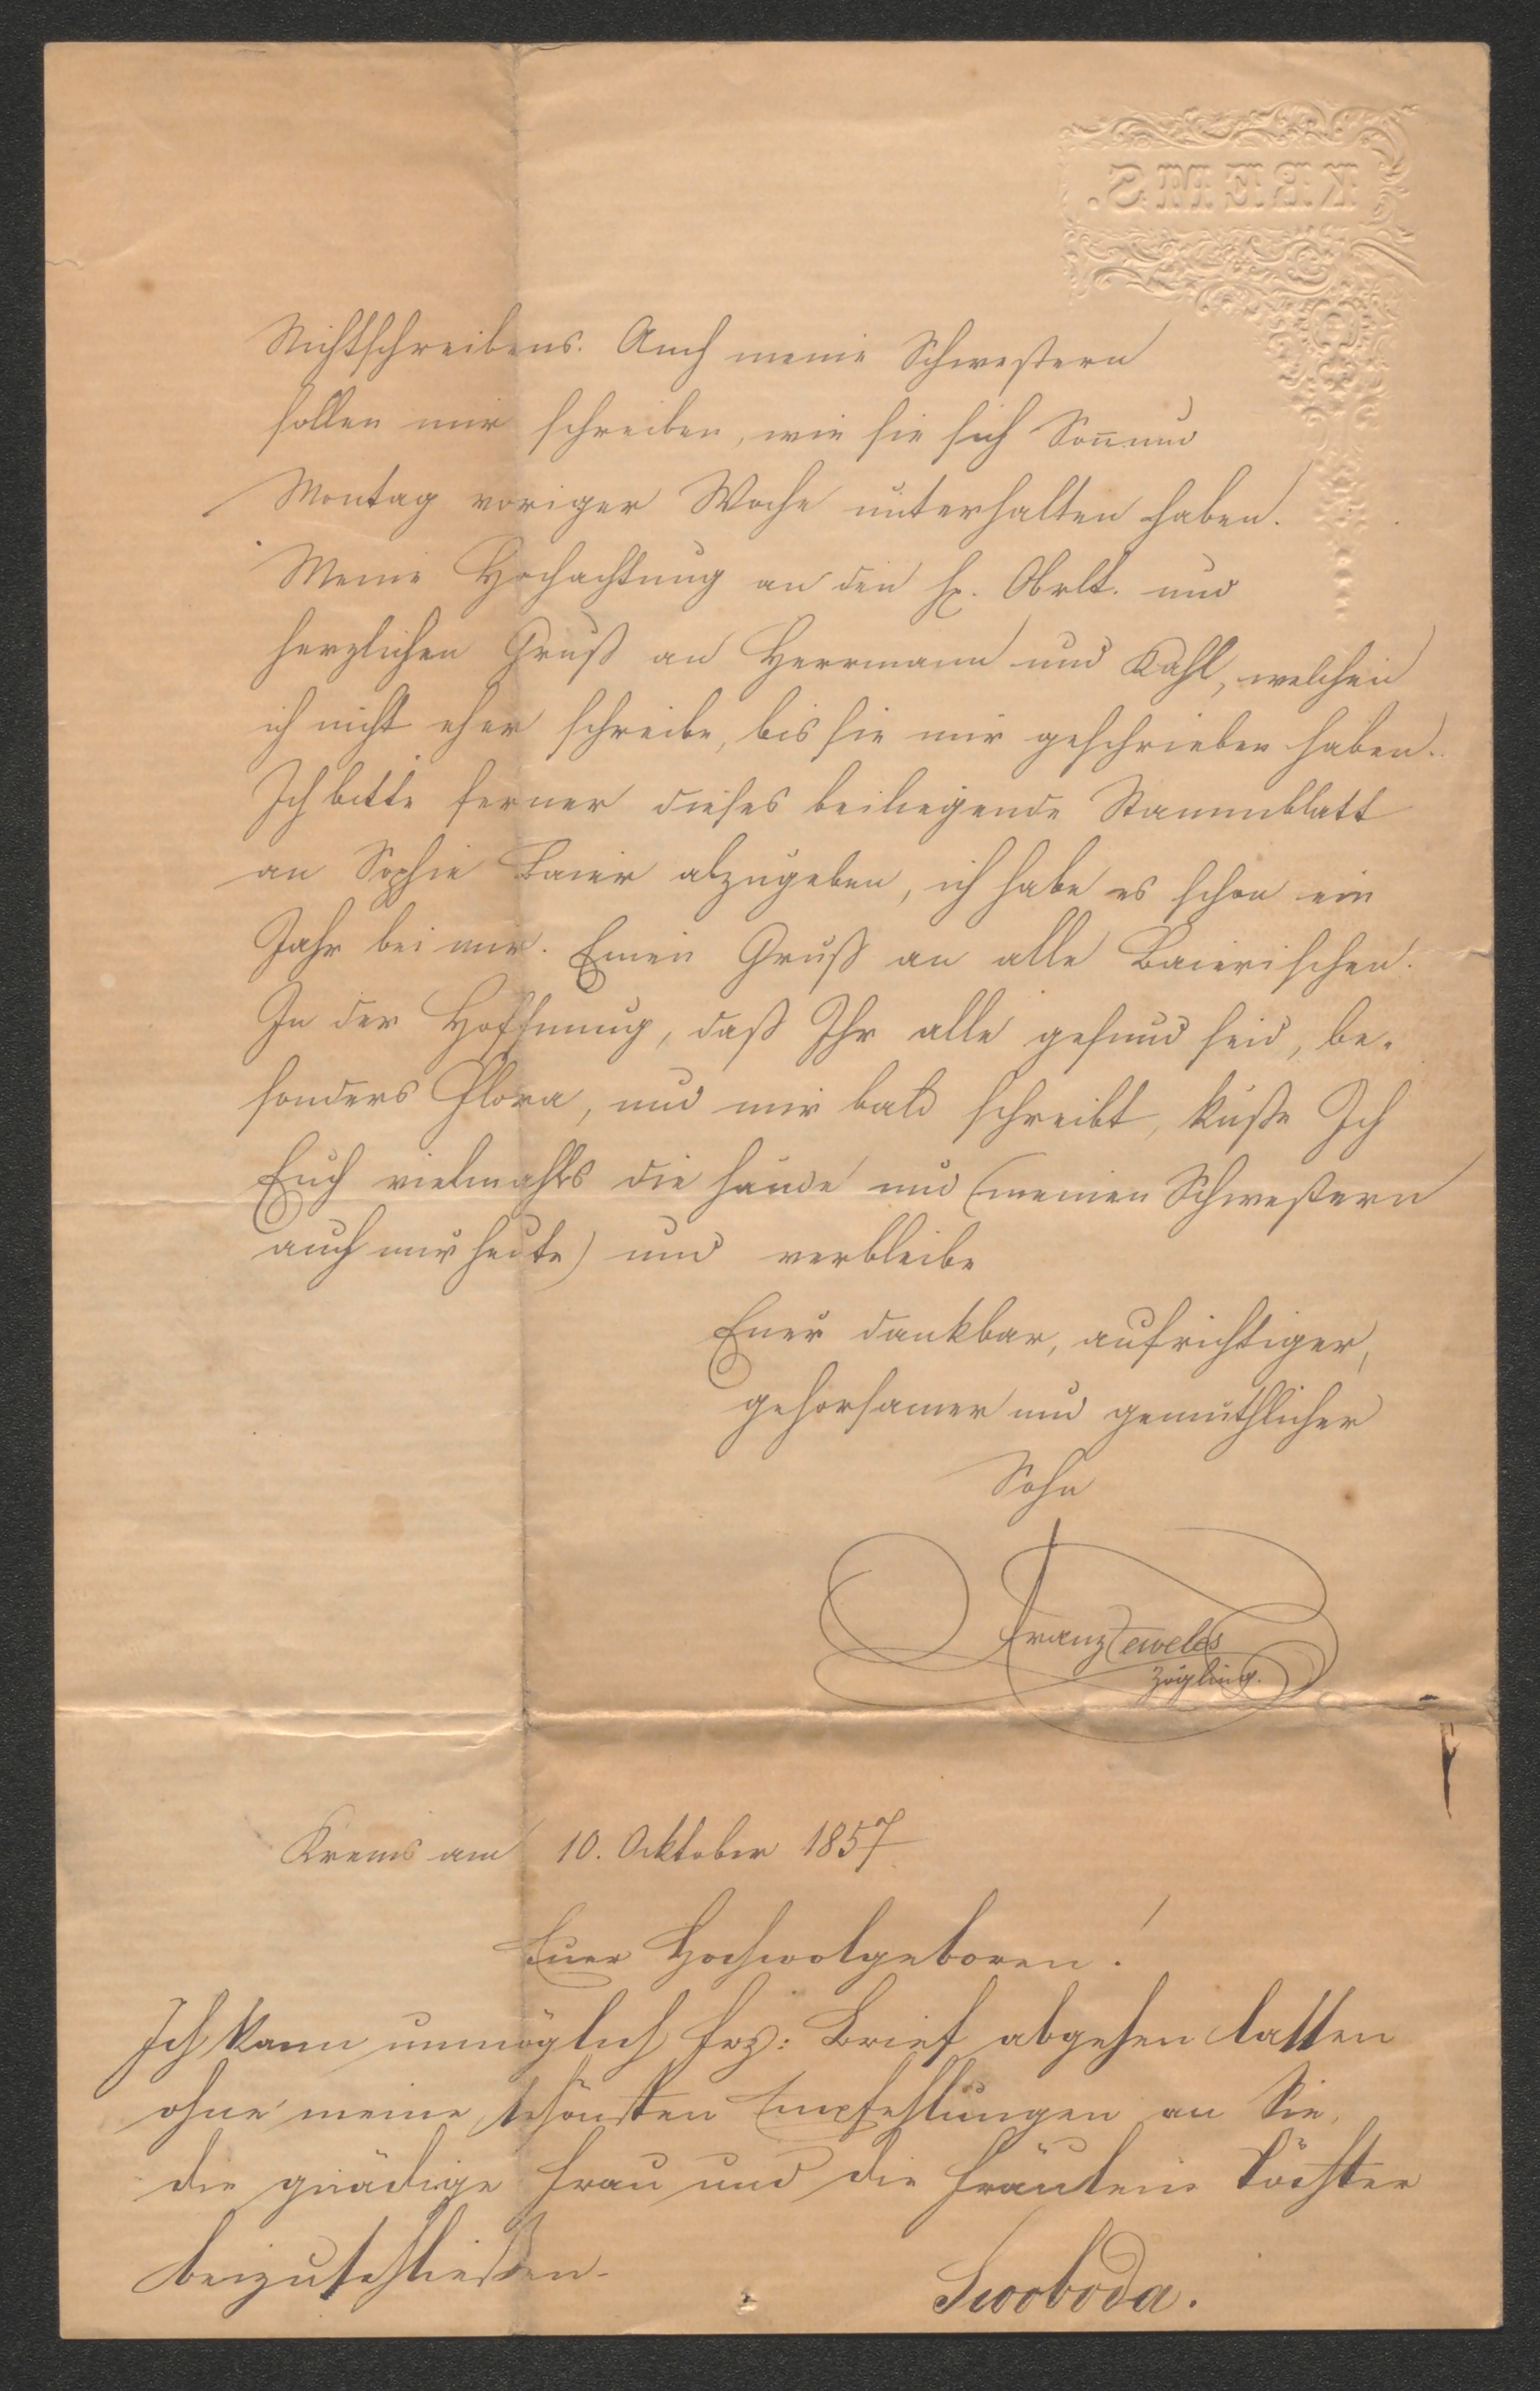 KREMS.
Nichtschreibens. Auch meine Schwestern
sollen mir schreiben, wie sie sich Son und
Montag voriger Woche unterhalten haben.
Meine Hochachtung an den H. Obrlt. und
herzlichen Gruß an Herrmann und Kahl, welchen
ich nicht eher schreibe, bis sie mir geschrieben haben.
Ich bitte ferner dieses beiliegende Stammblatt
an Sophie Baier abzugeben, ich habe es schon ein
Jahr bei mir. Einen Gruß an alle Baierischen.
In der Hoffnung, daß Ihr alle gesund seid, be-
sonders Flora, und mir bald schreibt, küße Ich
Euch vielmahls die Hände und (meinen Schwestern
auch nur heute) und verbleibe
Euer dankbar, aufrichtiger,
gehorsamer und gemüthlicher
Sohn
Franz Teweles
Zögling.
Krems am 10. Ocktober 1857
Euer Hochwolgeboren!
Ich kann unmöglich Brief abgehen lassen
ohne meine schönsten Empfehlungen an Sie,
die gnädige Frau und die Fräulein Töchter
beizuschließen.
Swoboda.